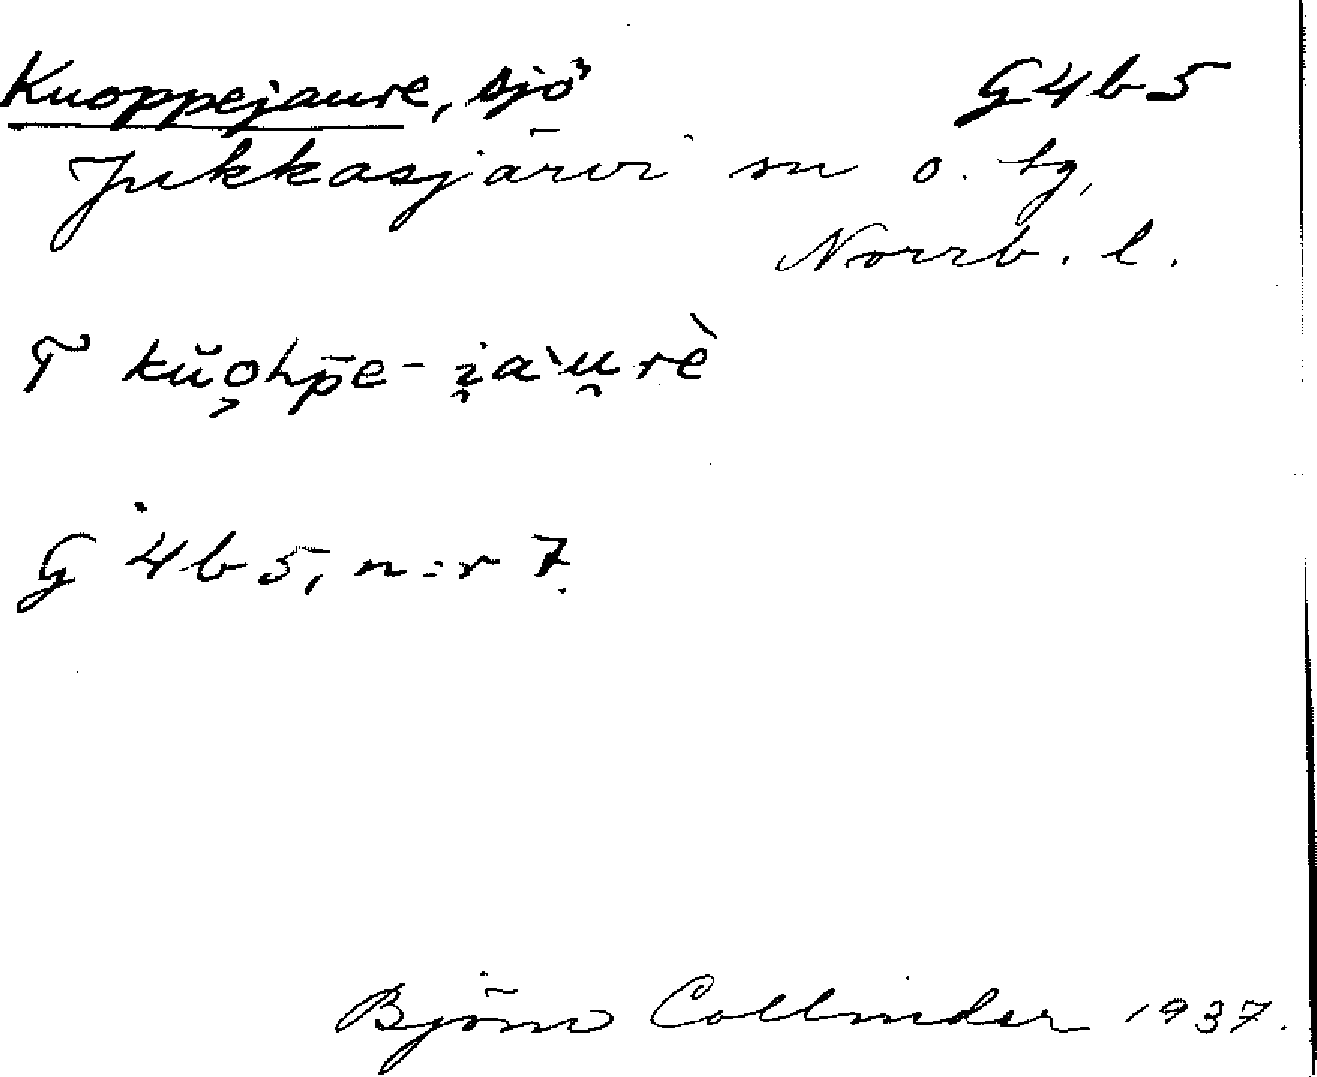 Kuoppejaure, sjö G4b5
Jukkasjärvi sn o. tg,
Norrb. l.
T kŭo̜hp̄e-i̯a`u̯rè
G 4b5, n:r 7.
Björn Collinder 1937.